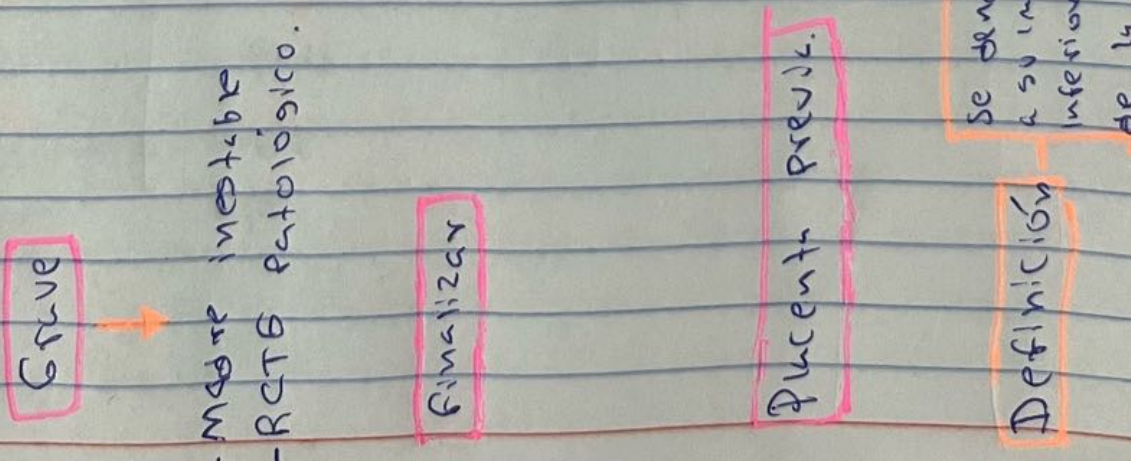 Grave
- Madre inestable
- RCTG patológico.
finalizar
Placenta previa.
Definición
Se
a su
inferior
de la